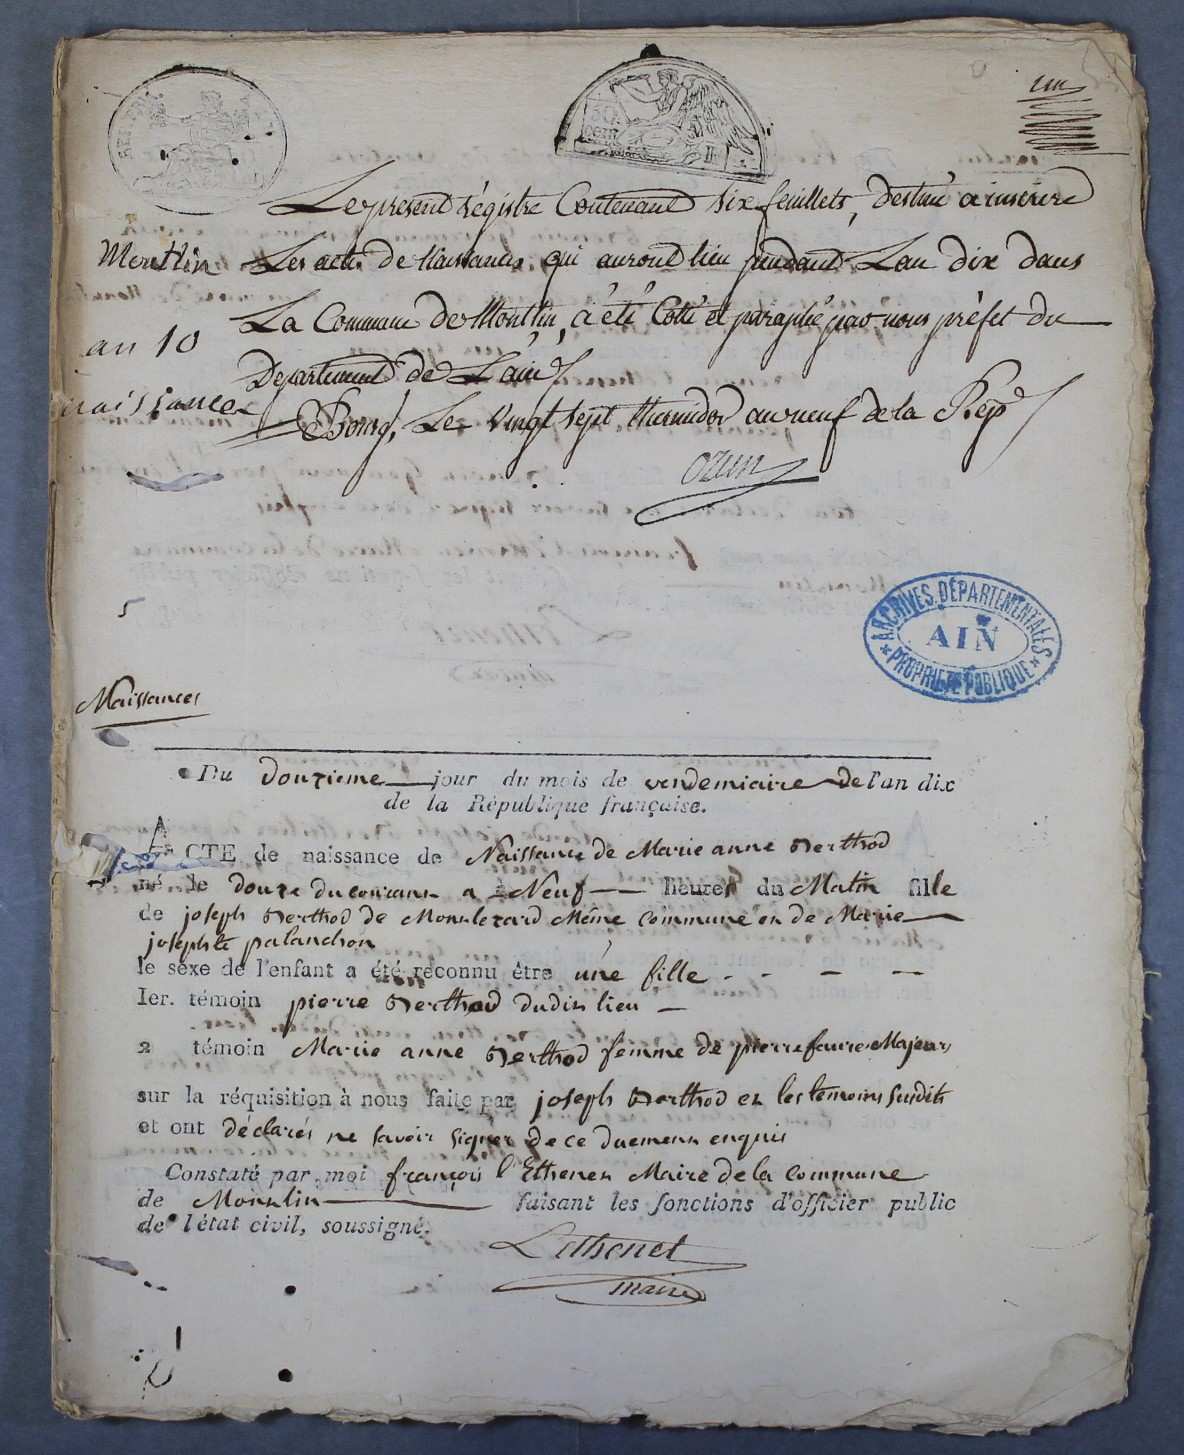 un
Le present régistre Contenant six feuillets, destiné a inscrire
Montlin Les actes de Naissances qui auront lieu pendant L'an dix dans
La Commune de Montlin, a été Cotté et paraphé par nous préfet du
an 10
Departement de L'ain
naissances
Bourg, Le vingt sept thermidor an neuf de la Rép
ozun
ARCHIVES DÉPARTEMENTALES
AIN
PROPRIÉTÉ PUBLIQUE
5
Naissances
Du douzieme jour du mois de vendemiaire de l'an dix
de la République française.
ACTE de naissance de Naissance de Marie anne Berthod
né le douze du courant a Neuf heures du Matin fille
de joseph Berthod de Monlezard Même commune et de Marie
josephte palanchon
le sexe de l'enfant a été reconnu être une fille - - - -
Ier. témoin pierre Berthod dudit lieu -
2 témoin Marie anne Berthod femme de pierre faure Majeurs
sur la réquisition à nous faite par joseph Berthod et les temoins susdits
et ont déclarés ne savoir signer de ce duement enquis
Constaté par moi françois l'Ethenet Maire de la commune
de Montlin faisant les fonctions d'officier public
de l'état civil, soussigné.
Lethenet
maire